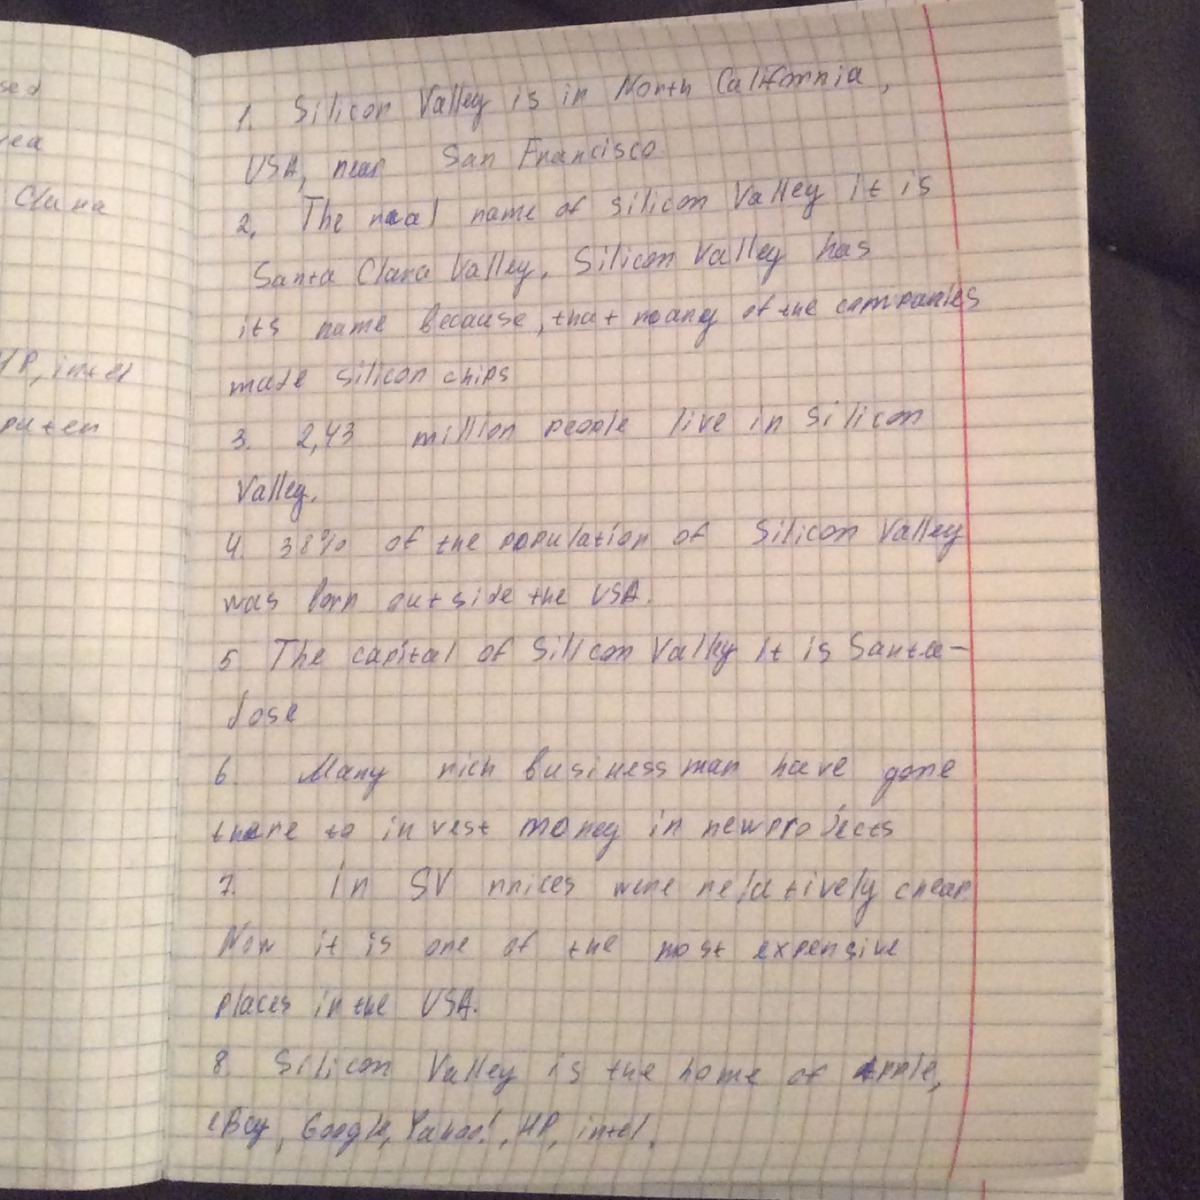 sed
rea
Clara
HP, intel
puter
1. Silicon Valley is in North California,
USA, near San Francisco.
2. The real name of silicon Valley it is
Santa Clara Valley. Silicon Valley has
its name because, that many of the companies
made silicon chips
3. 2,43 million people live in Silicon
Valley.
4. 38% of the population of Silicon Valley
was born outside the USA.
5 The capital of Silicon Valley it is Santa-
Jose
6 Many rich businessman have gone
there to invest money in new projects
7. In SV prices were relatively cheap
Now it is one of the most expensive
places in the USA.
8. Silicon Valley is the home of Apple,
eBay, Google, Yahoo!, HP, intel.